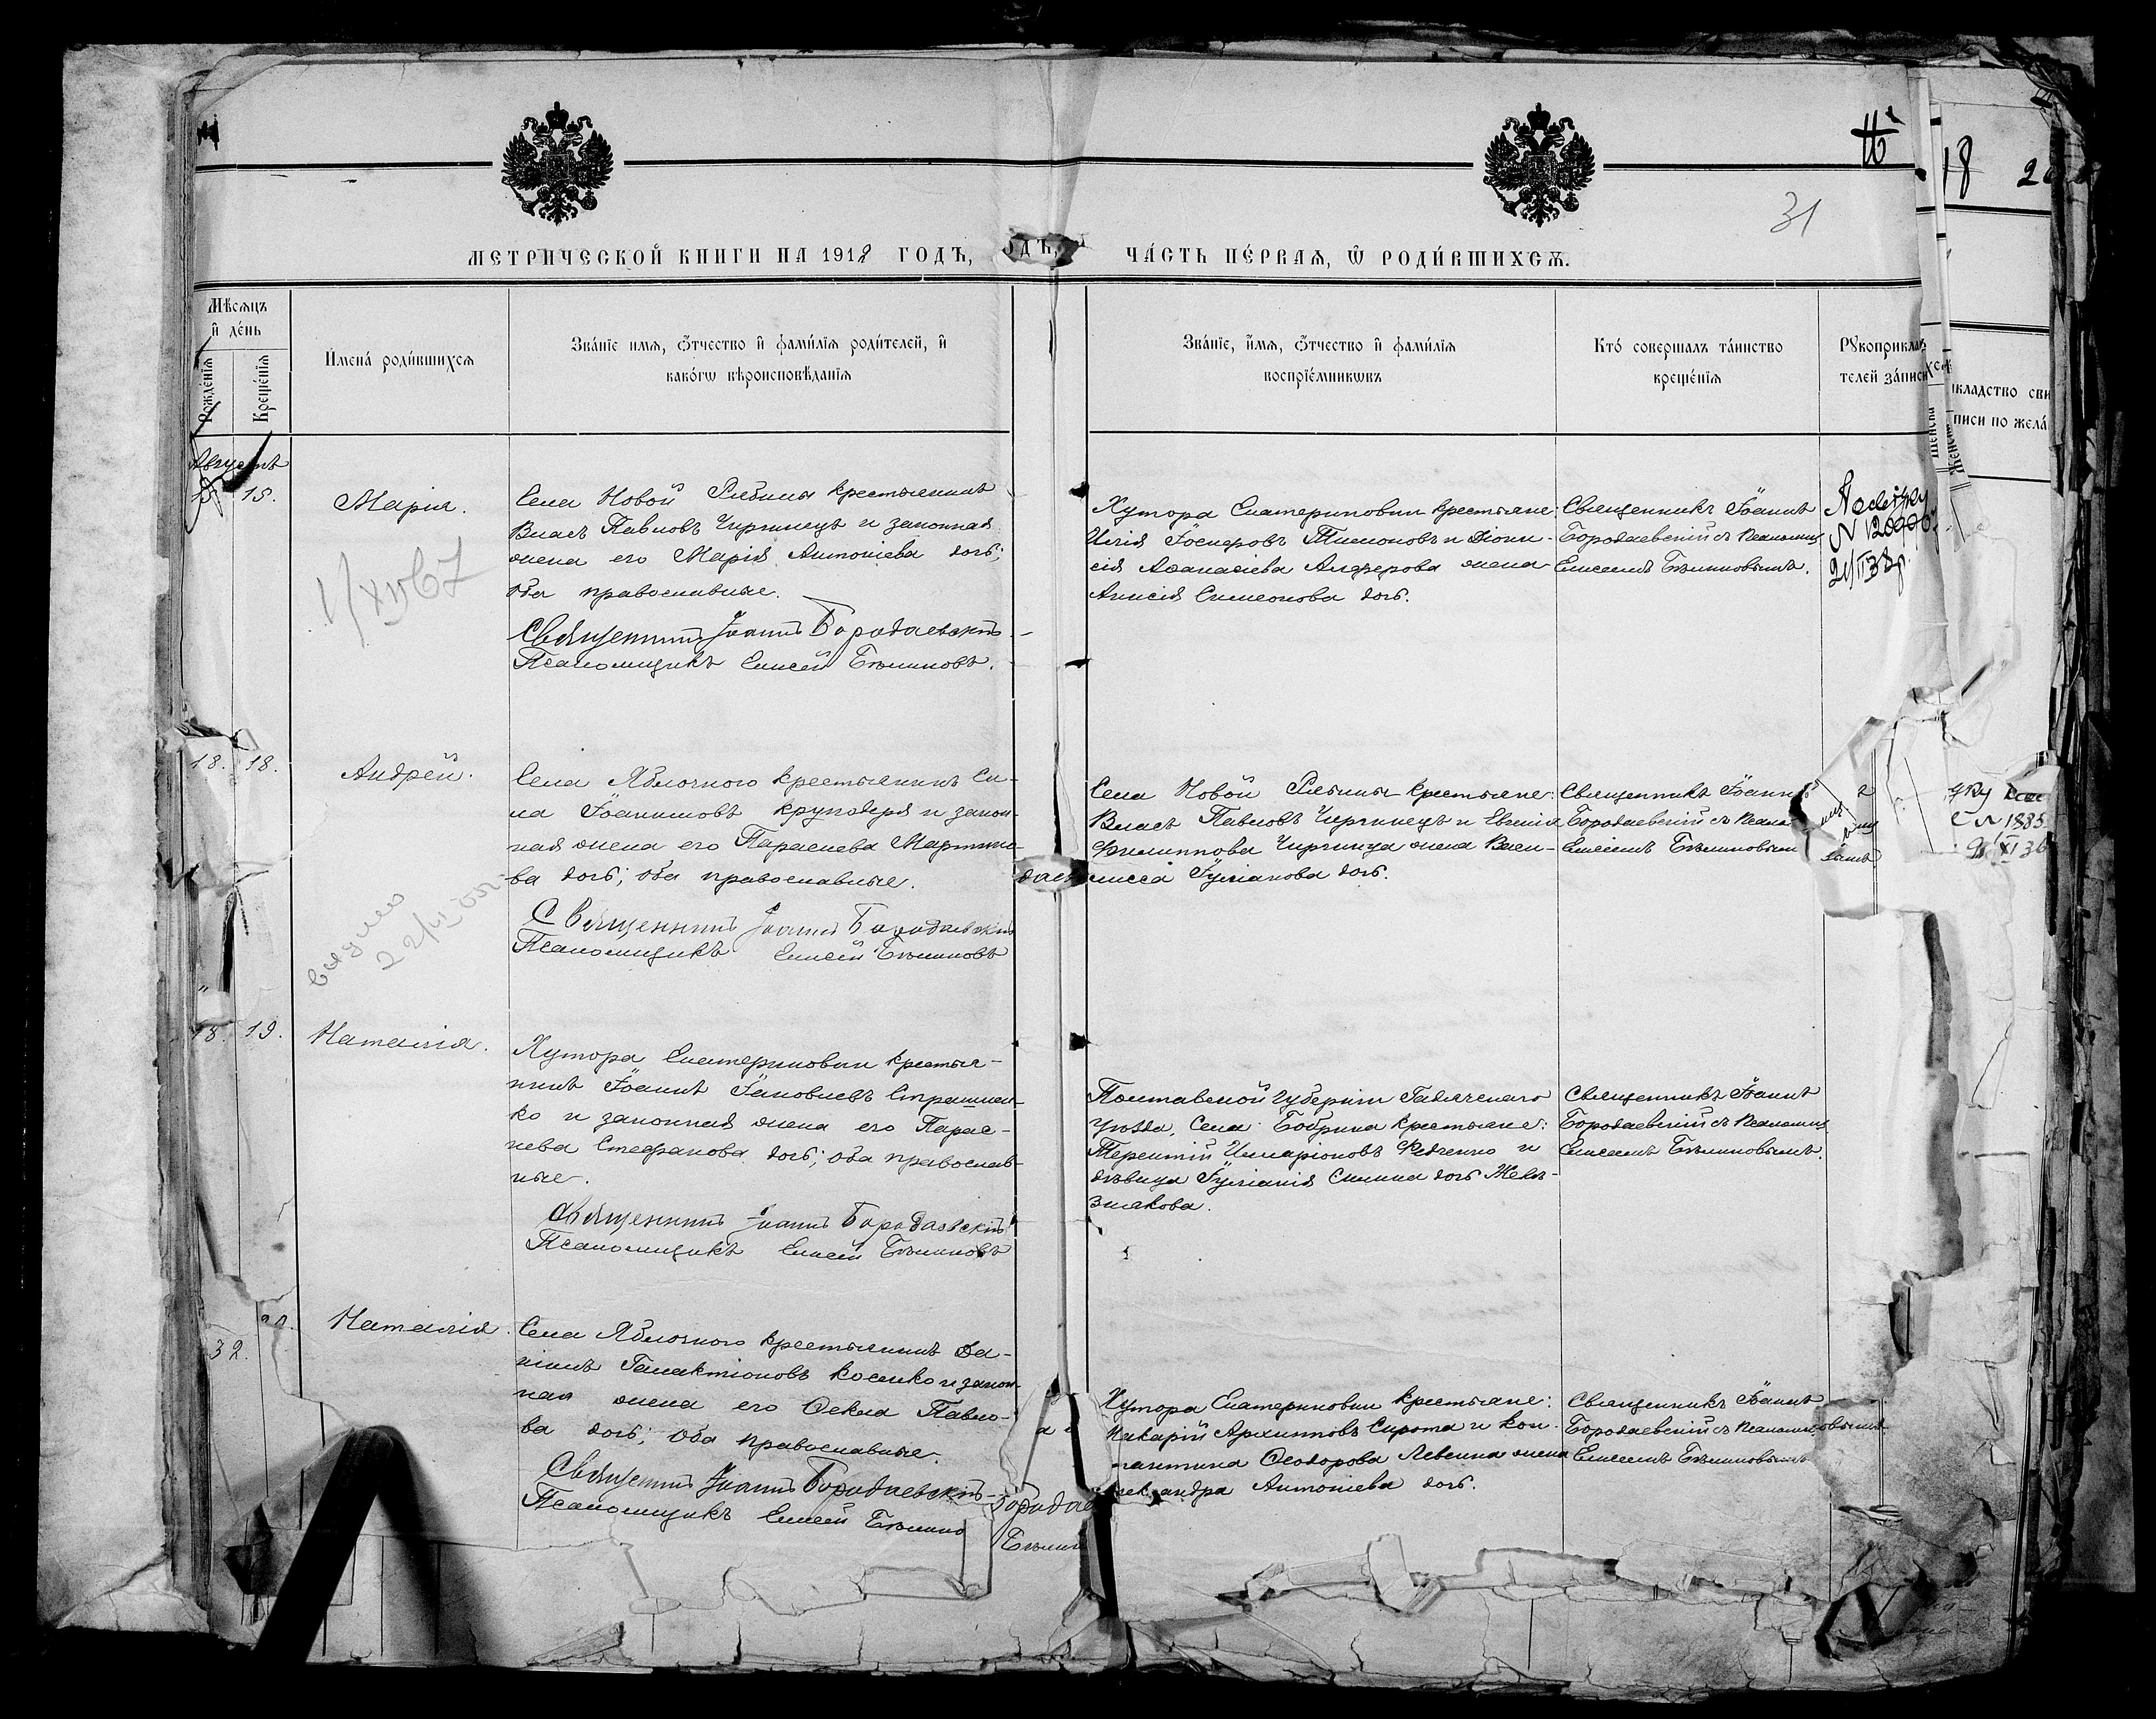 31
МЕТРИЧЕСКОЙ КНИГИ НА 1912 ГОДЪ,
ЧА́СТЬ ПЕ́РВАѦ, Ѿ РОДИ́ВШИХСѦ.
Мѣсѧцъ
и҆ де́нь
Рожде́нїѧ
Креще́нїѧ
И҆мена̀ роди́вшихсѧ
Зва́нїе имѧ, ѻ҆́тчество и҆ фами́лїѧ роди́телей, и҆
како́гѡ вѣроисповѣ́данїѧ
Зва́нїе, и҆́мѧ, ѻ҆́тчество и҆ фами́лїѧ
воспрїе́мникѡвъ
Кто̀ совершалъ та́инство
креще́нїѧ
Рꙋкоприклад
телей за́писи
Августъ
15. 15.
Марія.
Села Новой Рябины крестьянинъ
Власъ Павловъ Чирчинецъ и законная
жена его Марія Антоніева дочь;
оба православные.
Священникъ Іоаннъ Бородаевскій
Псаломщикъ Елисей Бѣлиновъ.
Хутора Екатериновки крестьяне:
Илія Іосифовъ Тимоновъ и Діони-
сія Аѳанасіева Алферова жена
Анисія Симеонова дочь.
Священникъ Іоаннъ
Бородаевскій съ Псаломщ
Елисеемъ Бѣлиновымъ.
18. 18.
Андрей.
Села Яблочного крестьянинъ Си-
ла Іоанновъ Круподеря и закон-
ная жена его Параскева Мартино-
ва дочь; оба православные.
Священникъ Іоаннъ Бородаевскій
Псаломщикъ Елисей Бѣлиновъ
Села Новой Рябины крестьяне:
Власъ Павловъ Чирчинецъ и Евгенія
Филиппова Чирчинца жена Васи-
лисса Іуліанова дочь.
Священникъ Іоаннъ
Бородаевскій съ Псалом
Елисеемъ Бѣлиновым
18. 19.
Наталія.
Хутора Екатериновки крестья-
нинъ Іоаннъ Іаковлевъ Страшнен-
ко и законная жена его Парас-
кева Стефанова дочь; оба православ-
ные.
Священникъ Іоаннъ Бородаевскій
Псаломщикъ Елисей Бѣлиновъ
Полтавской губерніи Гадячскаго
уѣзда, села Бобрика крестьяне:
Терентій Иларіоновъ Федченко и
дѣвица Іуліанія Силина дочь Желѣ-
знякова.
Священникъ Іоаннъ
Бородаевскій съ Псаломщ
Елисеемъ Бѣлиновымъ.
Наталія.
Села Яблочного крестьянинъ Да-
ніилъ Галактіоновъ Косенко и закон-
ная жена его Ѳекла Павло-
ва дочь; оба православные.
Священникъ Іоаннъ Бородаевскій
Псаломщикъ Елисей Бѣлино
Хутора Екатериновки крестьяне:
Макарій Архиповъ Сирота и Кон-
стантина Ѳеодорова Левенка жена
Александра Антоніева дочь.
Священникъ Іоаннъ
Бородаевскій съ Псаломщ
Елисеемъ Бѣлиновымъ